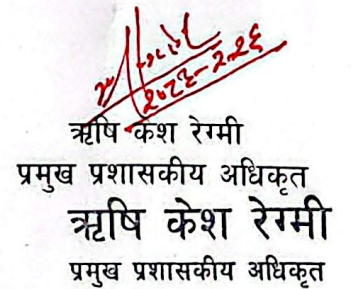 २०८३-२-२६
ऋषि केश रेग्मी
प्रमुख प्रशासकीय अधिकृत
ऋषि केश रेग्मी
प्रमुख प्रशासकीय अधिकृत